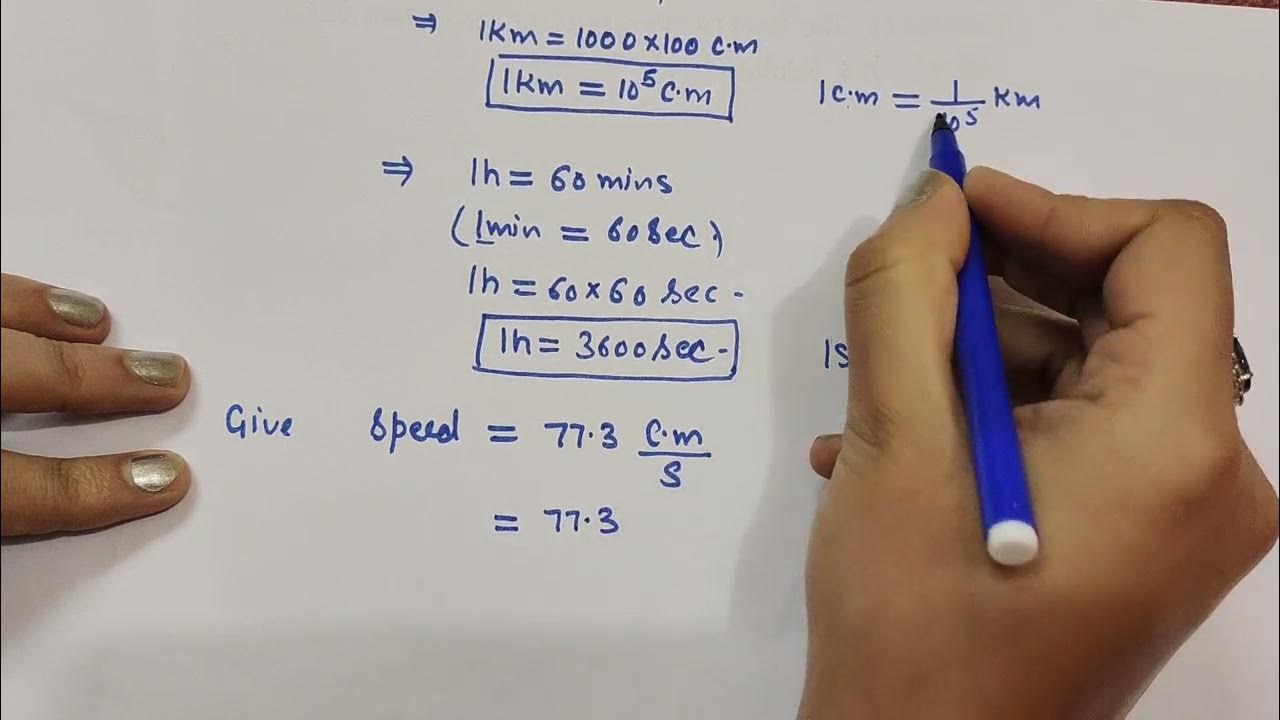 ⇒ 1Km = 1000 × 100 c.m
1Km = 10⁵ c.m
1 c.m = 1/10⁵ Km
⇒ 1h = 60 mins
(1min = 60 sec)
1h = 60 × 60 sec.
1h = 3600 sec.
1s
Give Speed = 77.3 c.m/s
= 77.3